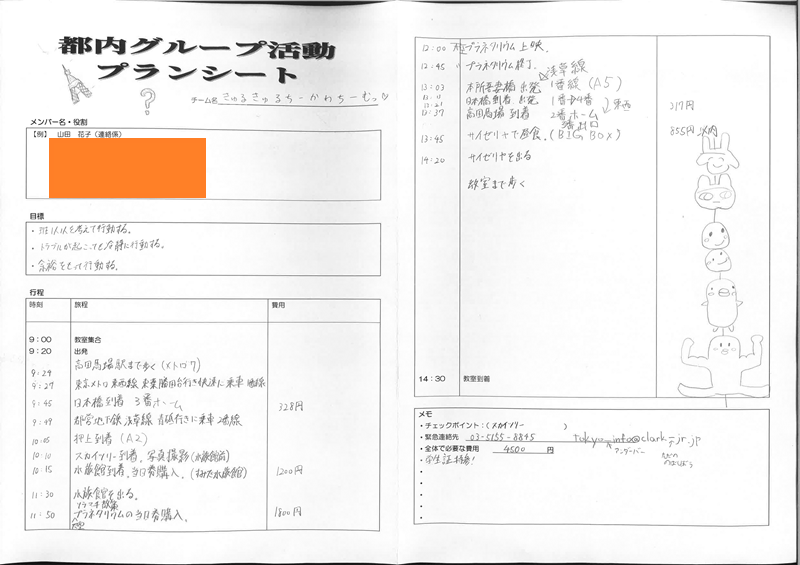 都内グループ活動
プランシート
チーム名 きゅるきゅるちーかわちーむっ♡
メンバー名・役割
【例】 山田 花子（連絡係）
目標
・トラブルが起こっても冷静に行動する。
・余裕をもって行動する。
行程
時刻 旅程 費用
9:00 教室集合
9:20 出発
高田馬場駅まで歩く(メトロ7)
9:29
9:27 東京メトロ東西線 東葉勝田台行き快速に乗車
9:45 日本橋到着 3番ホーム 328円
9:49 都営地下鉄 浅草線 青砥行きに乗車 2番線
10:05 押上到着 (A2)
10:10 スカイツリー到着、写真撮影(水族館前)
10:15 水族館到着、当日券購入。(すみだ水族館) 1200円
11:30 水族館を出る。
11:50 プラネタリウムの当日券購入。 1800円
12:00 プラネタリウム上映。
12:45 プラネタリウム終了。
浅草線
13:03 本所吾妻橋 出発 1番線 (A5)
日本橋到着 出発 東西 217円
13:37 高田馬場 到着 2番ホーム
3番出口
13:45 サイゼリヤで昼食。(BIG BOX) 855円以内
14:20 サイゼリヤを出る
教室まで歩く
14:30 教室到着
メモ
・チェックポイント：（スカイツリー）
・緊急連絡先 03-5155-8845 tokyo_info@clark-jr.jp
アンダーバー
・全体で必要な費用 4500 円
・学生証持参!